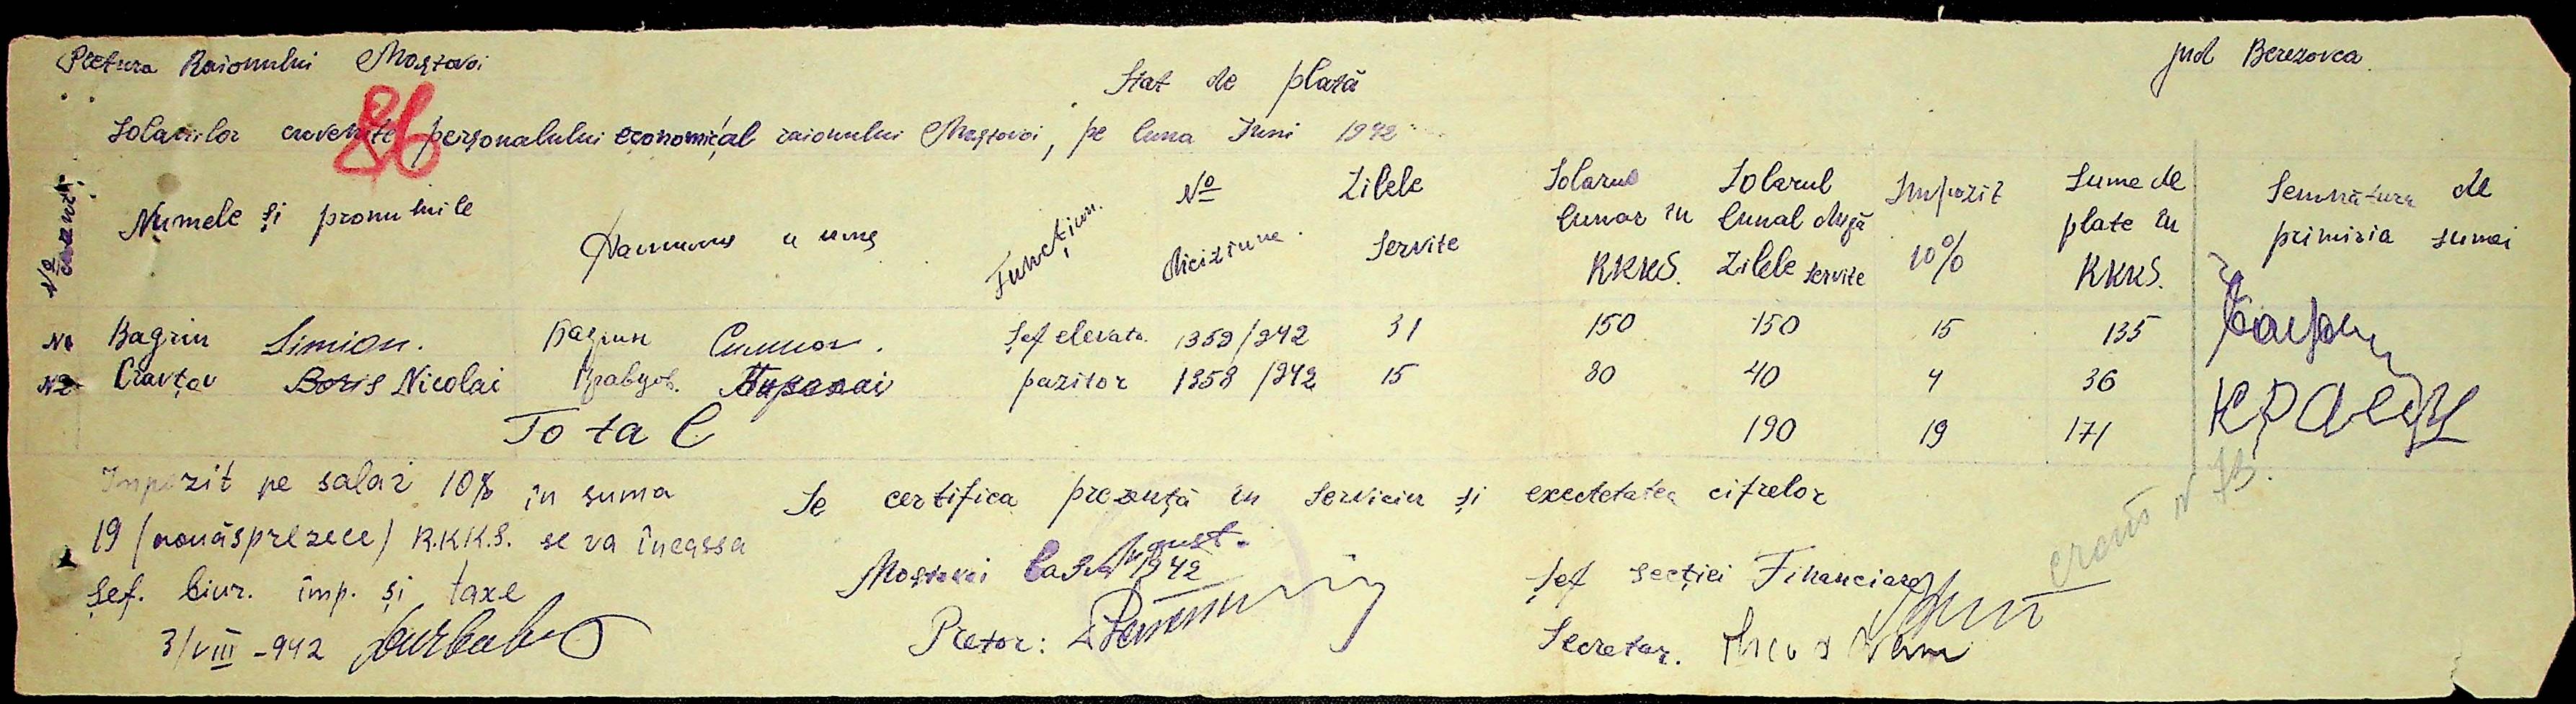 Pretura Raionului Mostovoi
jud Berezovca
Stat de plată
86
Solariilor cuvenite personalului economic al raionului Mostovoi, pe luna Iuni 1942
No curent. Numele și pronumile Фамилия и имя Funcțiun. No diciziune. Zilele Servite Solarul lunar în RKKS. Solarul lunal după Zilele servite Impozit 10% Sume de plate în RKKS. Semnătura de primiria sumei
N1 Bagrin Simion. Багрин Симион. Șef elevato. 1359/942 31 150 150 15 135
N2 Cravțov Boris Nicolai Кравцов. pazitor 1358/942 15 80 40 4 36 Кравц
Total 190 19 171
Impozit pe salar 10% în suma
19 (nouăsprezece) R.K.K.S. se va încassa
Șef. biur. imp. și taxe
3/VIII-942
Se certifica prezență în serviciu și exectetatea cifrelor
Mostovoi la August. 1942
Pretor:
Șef secției Financiare
Secretar.